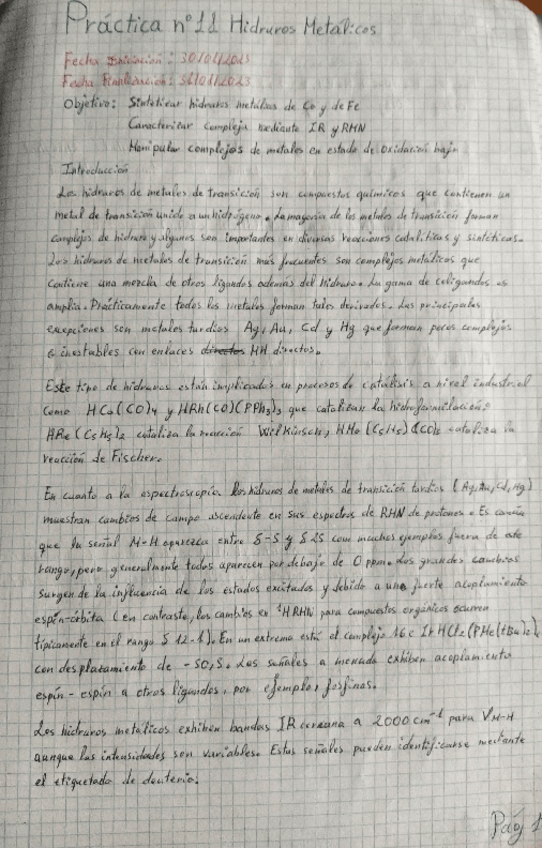 Práctica nº11 Hidruros Metálicos
Fecha Iniciación: 30/01/2023
Fecha Finalización: 31/01/2023
Objetivo: Sintetizar hidruros metálicos de Co y de Fe
Caracterizar complejo mediante IR y RMN
Manipular complejos de metales en estado de oxidación bajo
Introducción
Los hidruros de metales de transición son compuestos químicos que contienen un
metal de transición unido a un hidrógeno. La mayoría de los metales de transición forman
complejos de hidruro y algunos son importantes en diversas reacciones catalíticas y sintéticas.
Los hidruros de metales de transición más frecuentes son complejos metálicos que
contiene una mezcla de otros ligandos además del hidruro. La gama de coligandos es
amplia. Prácticamente todos los metales forman tales derivados. Las principales
excepciones son metales tardíos Ag, Au, Cd y Hg que forman pocos complejos
o inestables con enlaces directos MH directos.
Este tipo de hidruros están implicados en procesos de catálisis a nivel industrial
como HCo(CO)4 y HRh(CO)(PPh3)3 que catalizan la hidroformilación.
HRe(C5H5)2 cataliza la reacción Wilkinson, HMo(C5H5)(CO)3 cataliza la
reacción de Fischer.
En cuanto a la espectroscopía. Los hidruros de metales de transición tardíos (Ag, Au, Cd, Hg)
muestran cambios de campo ascendente en sus espectros de RMN de protones. Es común
que la señal M-H aparezca entre δ-5 y δ-25 con muchos ejemplos fuera de este
rango, pero generalmente todos aparecen por debajo de 0 ppm. Los grandes cambios
surgen de la influencia de los estados excitados y debido a un fuerte acoplamiento
espín-órbita (en contraste, los cambios en ¹H RMN para compuestos orgánicos ocurren
típicamente en el rango δ 12-1). En un extremo está el complejo 16e IrHCl2(PMe(tBu)2)2
con desplazamiento de -50,5. Las señales a menudo exhiben acoplamiento
espín-espín a otros ligandos, por ejemplo, fosfinas.
Los hidruros metálicos exhiben bandas IR cercana a 2000 cm⁻¹ para νM-H
aunque las intensidades son variables. Estas señales pueden identificarse mediante
el etiquetado de deuterio.
Pág 1